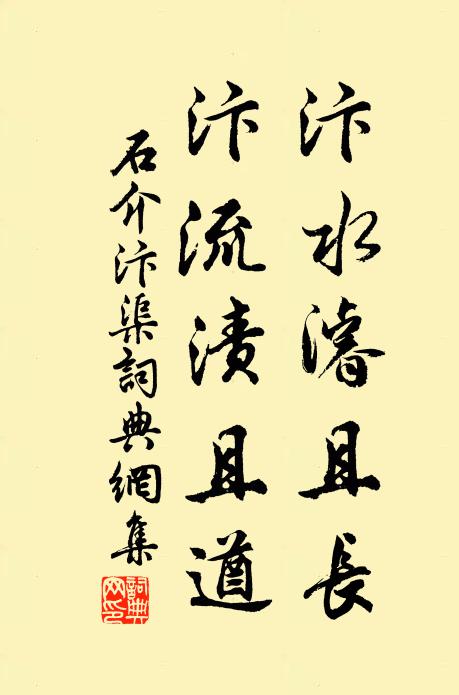 汴水濬且長
汴流漬且遒
石介汴渠詞典網集
詞典网印